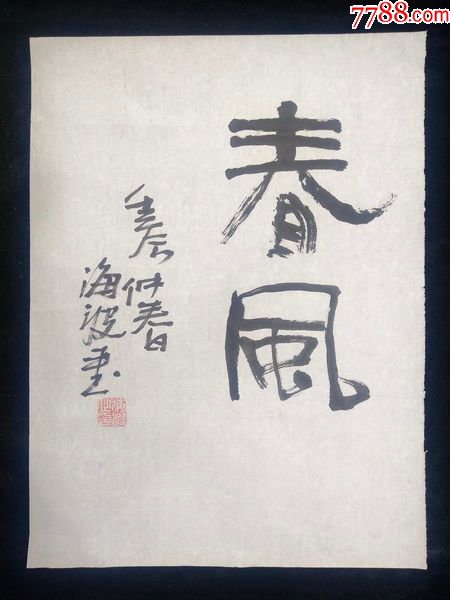 7788.com
春風
壬辰仲春
海波